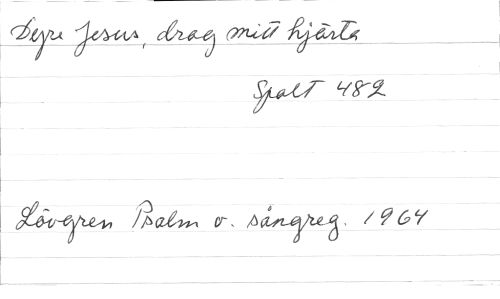 Dyre Jesus, drag mitt hjärta
Spalt 482
Lövgren Psalm o. sångreg. 1964